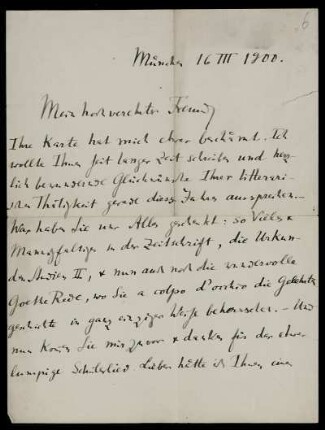 6
München 16 III 1900.
Mein hochverehrter Freund,
Ihre Karte hat mich etwas beschämt. Ich
wollte Ihnen seit langer Zeit schreiben und herz-
lich bewundernde Glückwünsche Ihrer litterari-
schen Thätigkeit gerade dieses Jahres aussprechen.
Was haben Sie uns Alles geschenkt: so Vieles u
Mannigfaltiges in der Zeitschrift, die Urkun-
den Studien II, u nun auch noch die wundervolle
Goethe Rede, wo Sie a colpo d'occhio die Gelehrten
geschichte in ganz einziger Weise beherrschen. – Und
nun kommen Sie mir zuvor u danken für das etwas
lumpige Schülerlied. Lieber hätte ich Ihnen einen